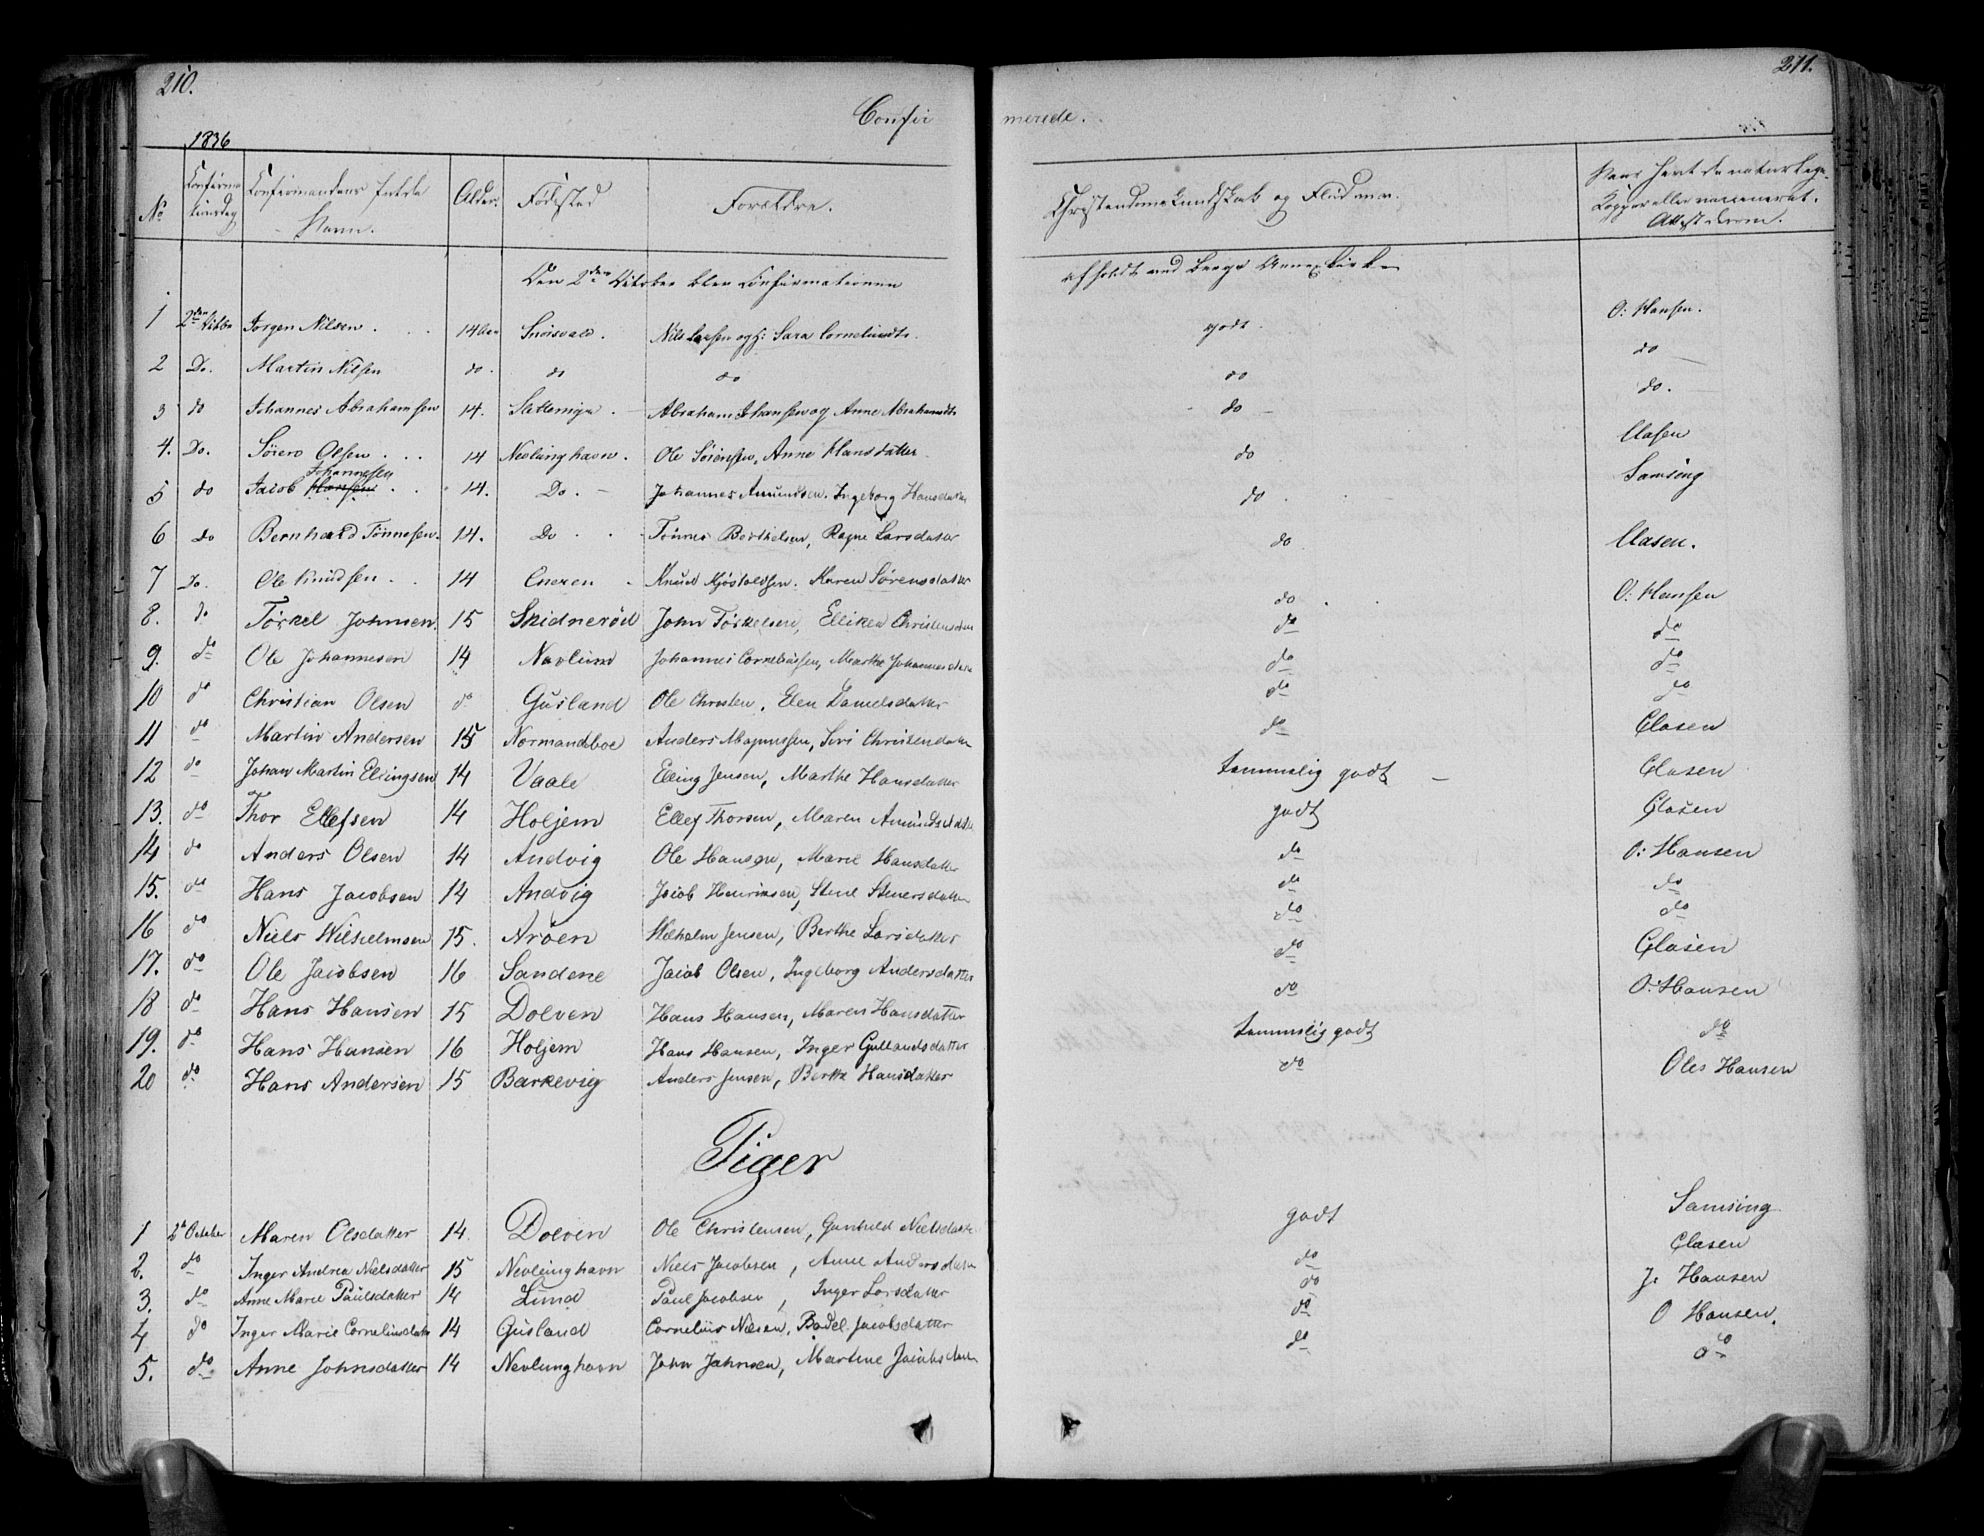 210.
211.
Confir merede.
1836
No Confirma tionsdag Confirmandens fulde Navn. Alder. Födested Forældre. Christendomskundskab og Flid m.v. Naar havt de naturlige Kopper eller vaccineret. Attest derom.
Den 2den October blev Confirmationen afholdt ved Berge Annexkirke
1 2den Jørgen Nilsen . . . 14 Nils og H: Sara Corneliusdt. godt. O: Hansen.
2 Do. Martin Nilsen do. do do do do
3 do Johannes Abrahamsen 14. Abraham og Anne Abrahamsdt do do.
4. Do. Søren Olsen . . . 14 Nevlunghavn. Ole Sørensen, Anne Hansdatter do Clasen
5 do Jacob Hansen Johannesen . . 14. Do. Johannes Amundsen. Ingeborg Hansdatter do Samsing
6 do Bernhard Tönnesen. 14. Do . . Tönnes Berthelsen, Ragne Larsdatter do Clasen.
7 Do. Ole Knudsen . . 14 Knud Karen Sörensdatter do O: Hansen
8. do Törkel Johnsen. 15 Skidneröd John Törkelsen, Elliken Christensdatter do do
9. do Ole Johannesen 14 Navlund Johannes Corneliussen, Marthe Johannesdatter do do
10 do Christian Olsen do Gusland Ole Christen, Elen Danielsdatter do do
11 do Martin Andersen 15 Normandboe Anders Magnussen, Siri Christensdatter do Clasen
12 do Johan Martin Ellingsen 14 Vaale Elling Jensen, Marthe Hansdatter temmelig godt Clasen
13. do Thor Ellefsen 14 Holjem Ellef Thorsen, Maren Amundsdatter godt Clasen
14 do Anders Olsen 14 Andvig Ole Hansen, Marie Hansdatter do O: Hansen
15. do Hans Jacobsen 14 Andvig Jacob Henriksen, Stine do do
16 do Niels Wilhelmsen 15. Aröen Wilhelm Jensen, Berthe Larsdatter do do
17. do Ole Jacobsen 16 Sandene Jacob Olsen, Ingeborg Andersdatter do Clasen
18 do Hans Hansen 15 Dolven Hans Hansen, Maren Hansdatter do O. Hansen
19. do Hans Hansen 16 Holjem Hans Hansen, Inger Gullandsdatter temmelig godt do
20 do Hans Andersen 15 Barkevig Anders Jensen, Berthe Hansdatter do Oles Hansen
Piger
1 2d October Maren Olsdatter 14. Dolven Ole Christensen, Gunhild Nielsdatter godt Samsing
2. do Inger Andrea Nielsdatter 15 Nevlunghavn Niels Jacobsen, Anne Andersdatter do Clasen
3. do Anne Marie Paulsdatter 14 Lund Paul Jacobsen, Inger Larsdatter do J. Hansen
4 do Inger Marie Corneliusdatter 14 Gusland Cornelius Nielsen, Bodel Jacobsdatter do O Hansen.
5. do Anne Johnsdatter 14 Nevlunghavn John Johnsen, Martine Jacobsdatter do do